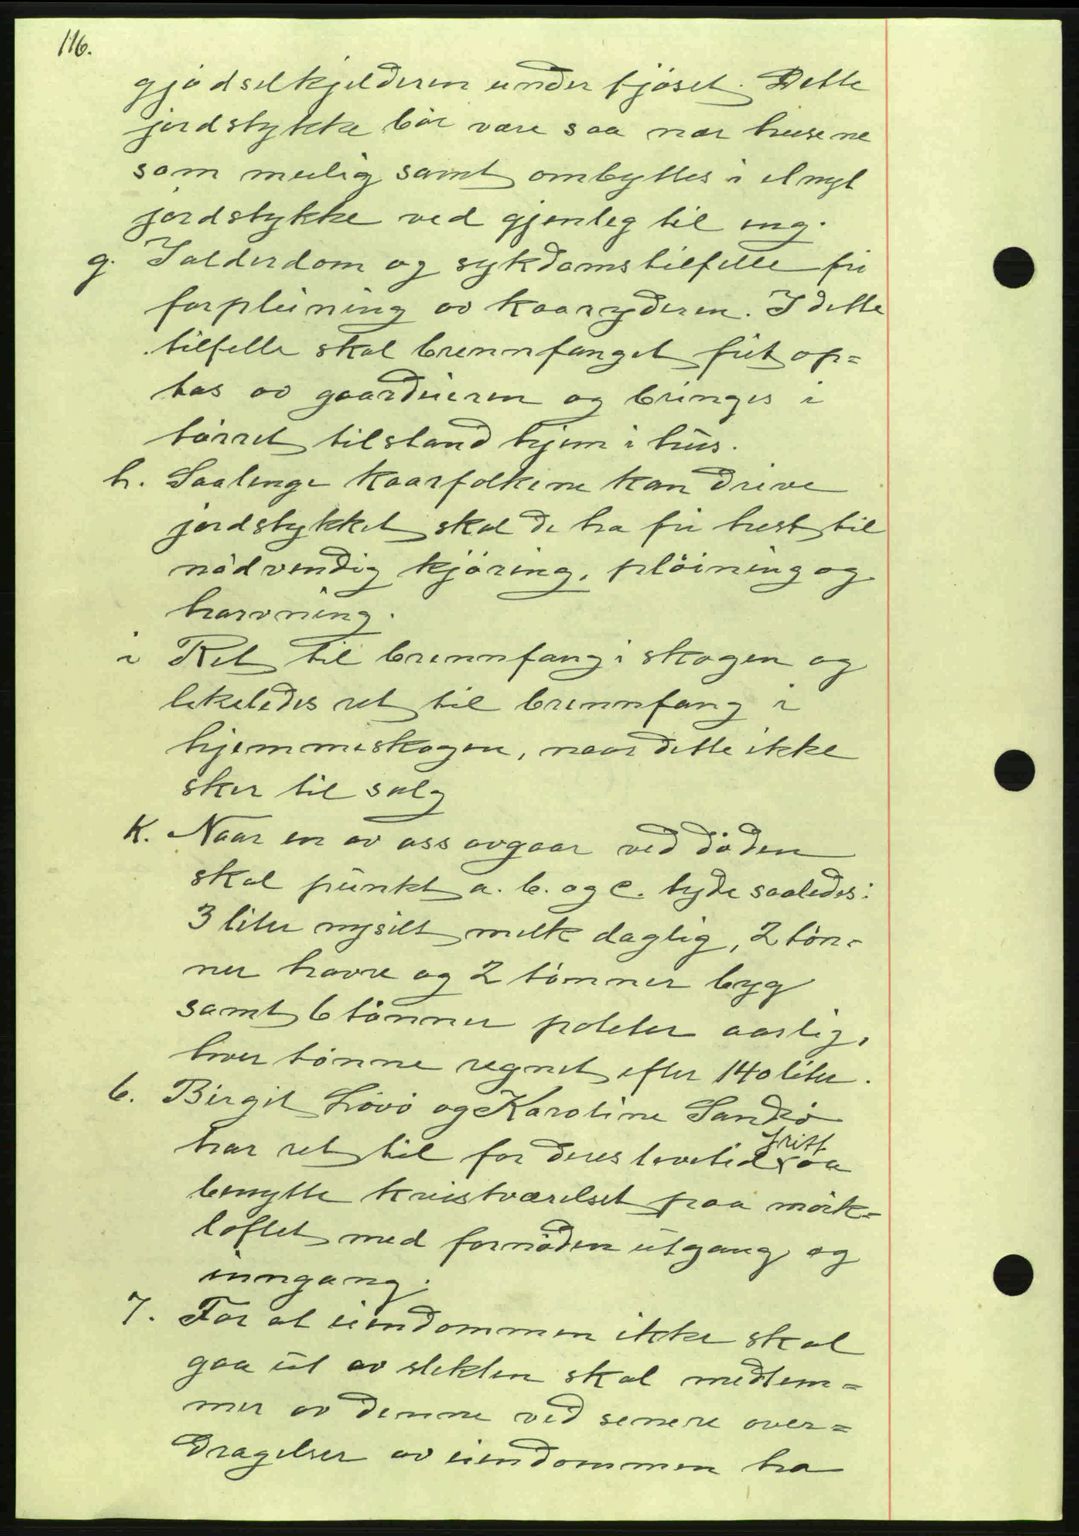 116.
gjødselkjelderen under fjøset. Dette
jordstykke bør være saa nær husene
som mulig samt ombyttes i et nyt
jordstykke ved gjenleg til eng.
g. I alderdom og sykdomstilfelle fri
forpleining av kaaryderen. I dette
tilfelle skal brennfanget frit op-
tas av gaardeieren og bringes i
tørret tilstand hjem i hus.
h. Saalenge kaarfolkene kan drive
jordstykket skal de ha fri hest til
nødvendig kjøring, pløining og
harvning.
i Ret til brennfang i skogen og
likeledes ret til brennfang i
hjemmeskogen, naar dette ikke
sker til salg
K. Naar en av oss avgaar ved døden
skal punkt a. b. og c. lyde saaledes:
3 liter nysilt melk daglig, 2 tøn-
ner havre og 2 tønner byg
samt 6 tønner poteter aarlig,
hver tønne regnet efter 140 liter.
6. Birgit Løvø og Karoline Sandrø
har ret til for deres levetid fritt aa
benytte kvistværelset paa mørk-
loftet med fornøden utgang og
inngang.
7. For at eiendommen ikke skal
gaa ut av slekten skal medlem-
mer av denne ved senere over-
dragelser av eiendommen ha